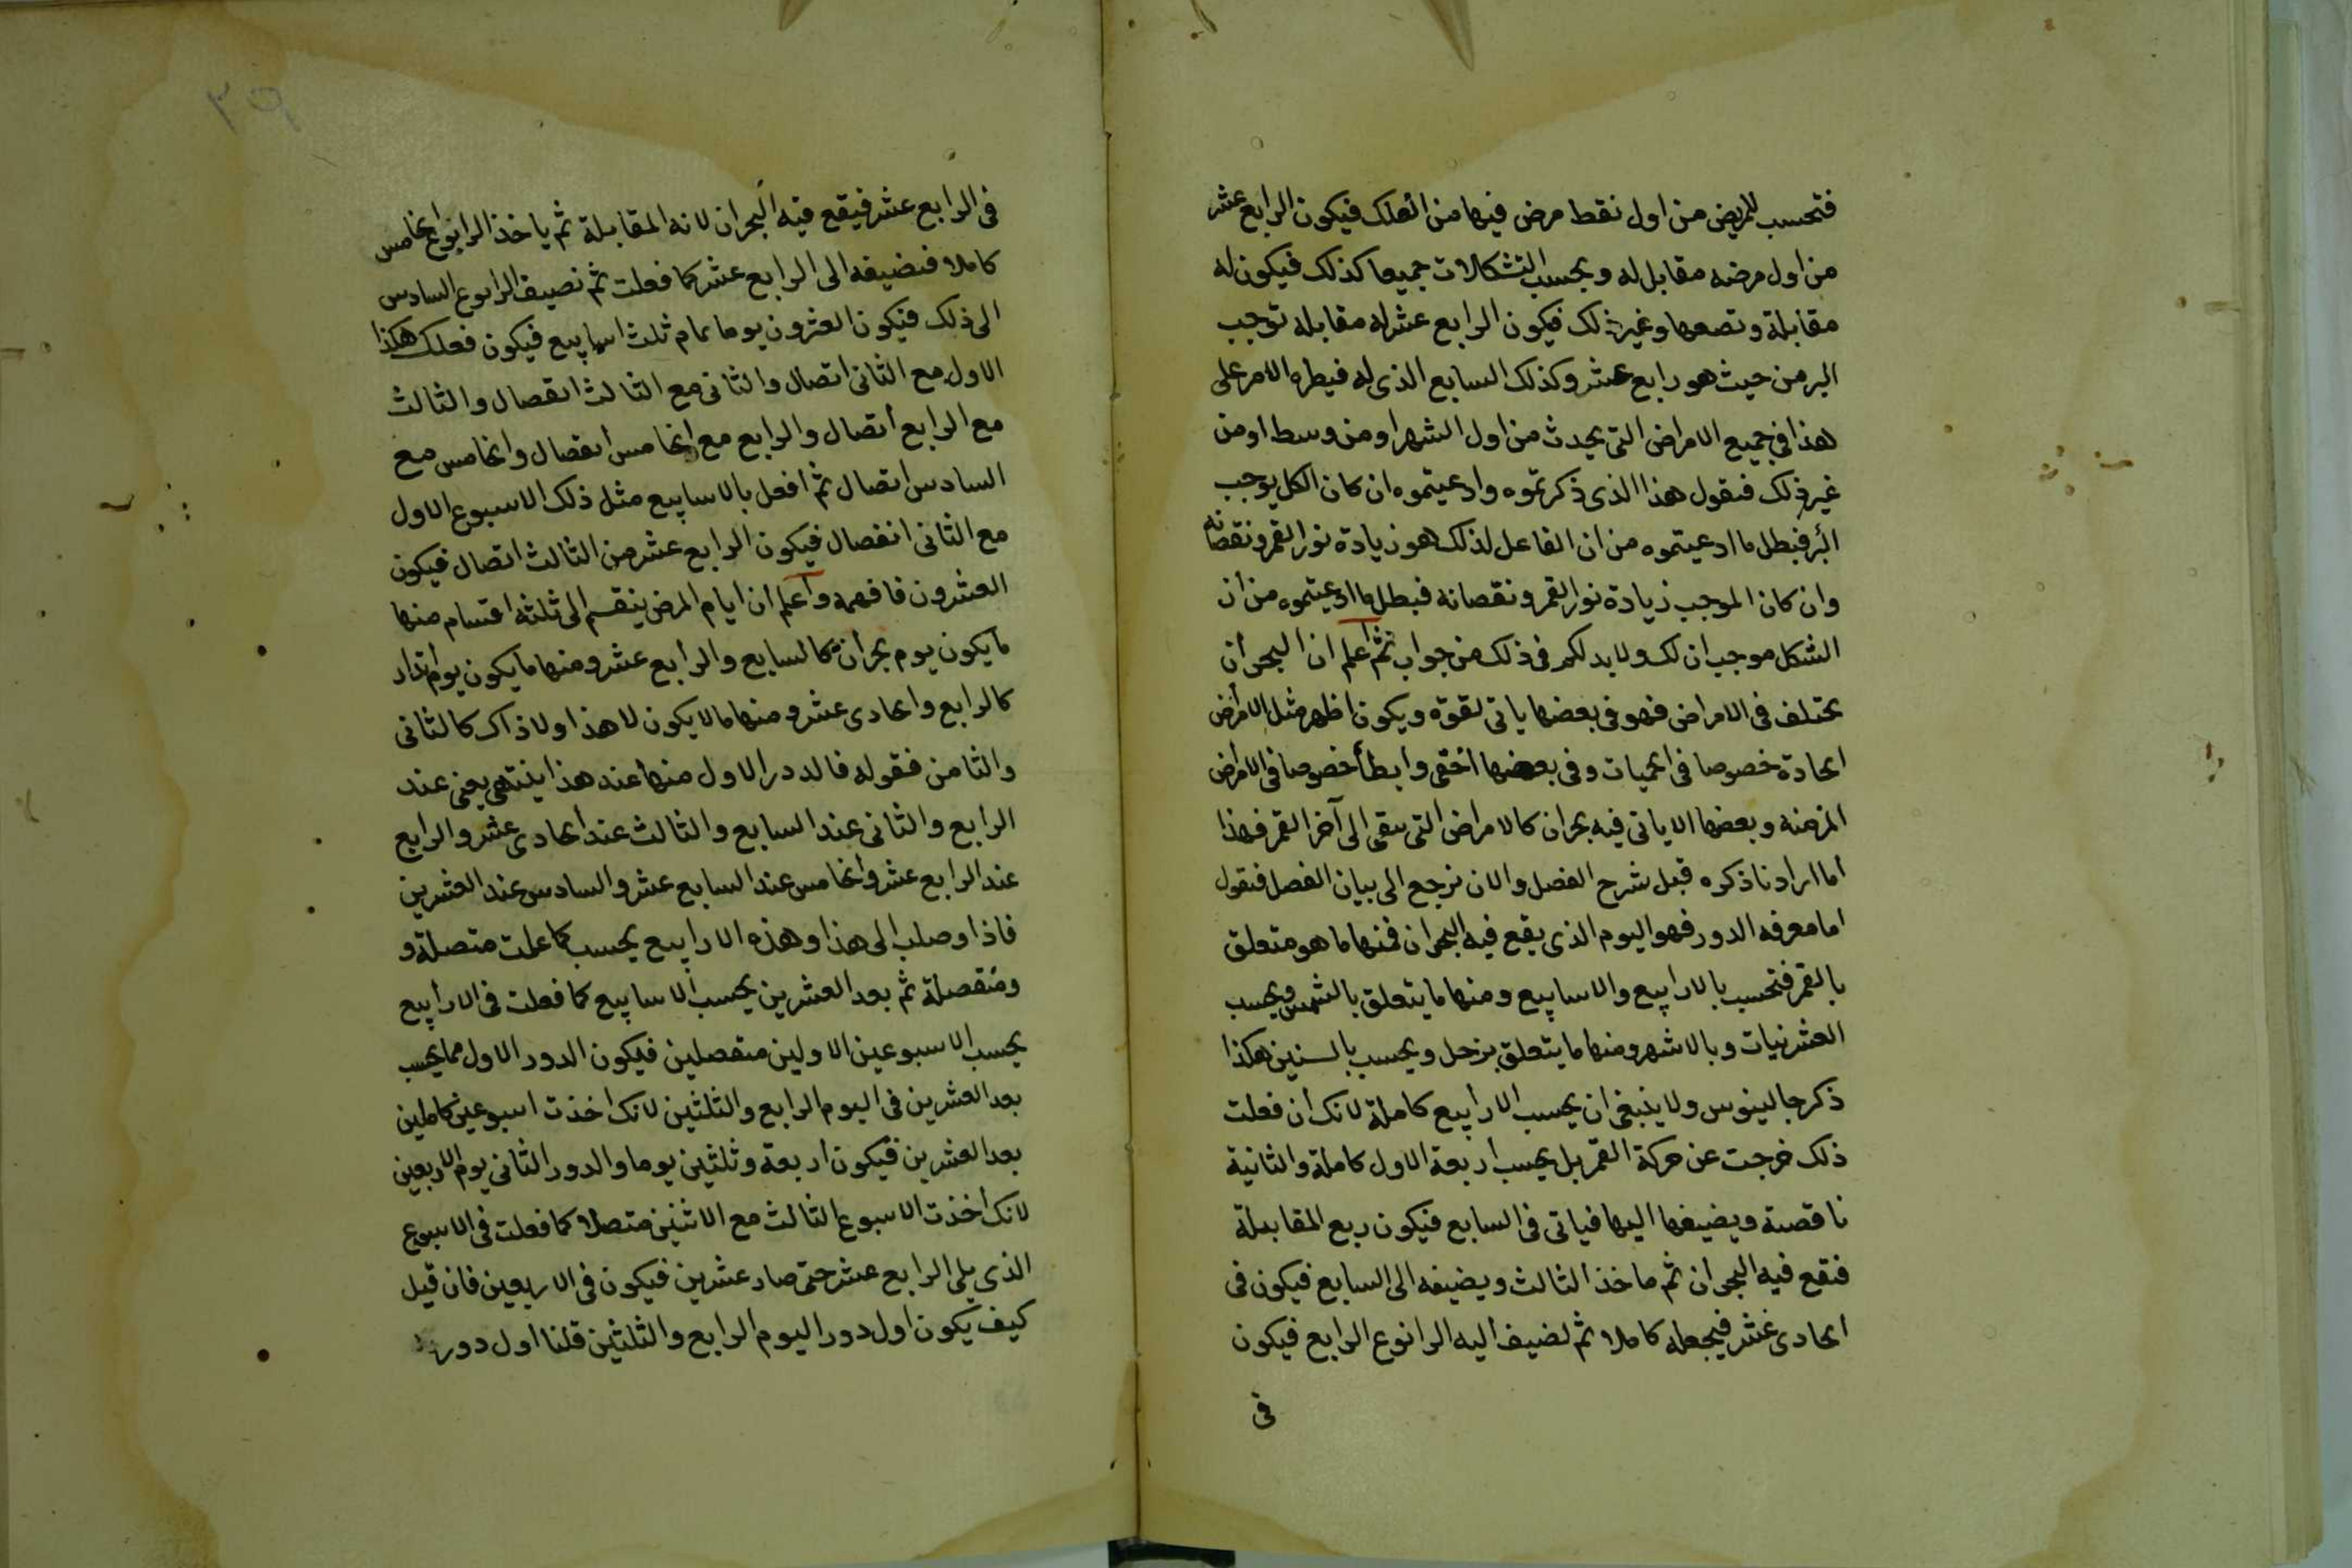 فتحسب للمريض من اول نقط مرض فيها من الفلك فيكون الرابع عشر
من اول مرضه مقابل له وبحسب التشكلات جميعا كذلك فيكون له
مقابلة ونصفها وغير ذلك فيكون الرابع عشر له مقابلة توجب
البر من حيث هو رابع عشر وكذلك السابع الذى له فيطره الامر على
هذا فى جميع الامراض التى يحدث من اول الشهر او من وسط او من
غير ذلك فنقول هذا الذى ذكرتموه وادعيتموه ان كان الكل يوجب
البر فبطل ما ادعيتموه من ان الفاعل لذلك هو زيادة نور القمر ونقصانه
وان كان الموجب زيادة نور القمر ونقصانه فبطل ما ادعيتموه من ان
الشكل موجب ان لك ولا بد لكم فى ذلك من جواب ثم اعلم ان البحران
يختلف فى الامراض فهو فى بعضها ياتى لقوة ويكون اظهر مثل الامراض
الحادة خصوصا فى الحميات وفى بعضها اخفى وابطأ خصوصا فى الامراض
المزمنة وبعضها لا ياتى فيه بحران كالامراض التى تبقى الى آخر القمر فهذا
اما اردنا ذكره قبل شرح الفصل والان نرجع الى بيان الفصل فنقول
اما معرفه الدور فهو اليوم الذى يقع فيه البحران فمنها ما هو متعلق
بالقمر فتحسب بالارابيع والاسابيع ومنها ما يتعلق بالشمس ويحسب
العشرنيات وبالاشهر ومنها ما يتعلق بزحل ويحسب بالسنين هكذا
ذكر جالينوس ولا ينبغى ان يحسب الارابيع كاملة لانك ان فعلت
ذلك خرجت عن حركة القمر بل يحسب اربعة الاول كاملة والثانية
ناقصة ويضيفها اليها فياتى فى السابع فيكون ربع المقابلة
فتقع فيه البحران ثم ماخذ الثالث ويضيفه الى السابع فيكون فى
الحادى عشر فيجعله كاملا ثم لضيف اليه الرابوع الرابع فيكون
فى
٣٩
فى الرابع عشر فيقع فيه البحران لانه المقابلة ثم ياخذ الرابوع الخامس
كاملا فنضيفه الى الرابع عشر كما فعلت ثم نصيف الرابوع السادس
الى ذلك فيكون العشرون يوما تمام ثلث اسابيع فيكون فعلك هكذا
الاول مع الثانى اتصال والثانى مع الثالث انفصال والثالث
مع الرابع اتصال والرابع مع الخامس انفصال والخامس مع
السادس اتصال ثم افعل بالاسابيع مثل ذلك الاسبوع الاول
مع الثانى انفصال فيكون الرابع عشر من الثالث اتصال فيكون
العشرون فافهمه واعلم ان ايام المرض ينقسم الى ثلثة اقسام منها
ما يكون يوم بحران كالسابع والرابع عشر ومنها ما يكون يوم انذار
كالرابع والحادى عشر ومنها ما لا يكون لا هذا ولا ذاك كالثانى
والثامن فقوله فالددر الاول منها عند هذا ينتهى يعنى عند
الرابع والثانى عند السابع والثالث عند الحادى عشر والرابع
عند الرابع عشر والخامس عند السابع عشر والسادس عند العشرين
فاذا وصلب الى هذا وهذه الارابيع يحسب كما علمت متصلة و
ومنفصلة ثم بعد العشرين يحسب الاسابيع كما فعلت فى الارابيع
يحسب الاسبوعين الاولين منفصلين فيكون الدور الاول مما يحسب
بعد العشرين فى اليوم الرابع والثلثين لانك اخذت اسبوعين كاملين
بعد العشرين فيكون اربعة وثلثين يوما والدور الثانى يوم الاربعين
لانك اخذت الاسبوع الثالث مع الاثنين متصلا كما فعلت فى الاسبوع
الذى يلى الرابع عشر حتى صار عشرين فيكون فى الاربعين فان قيل
كيف يكون اول دور اليوم الرابع والثلثين قلنا اول دور